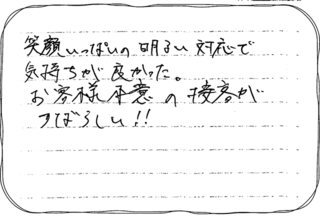 笑顔いっぱいの明るい対応で
気持ちが良かった。
お客様本意の接客が
すばらしい!!